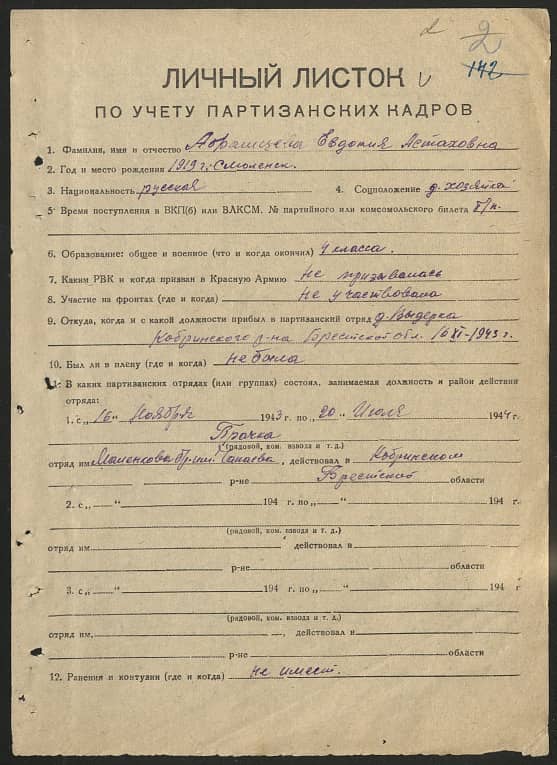 2
142
ЛИЧНЫЙ ЛИСТОК
ПО УЧЕТУ ПАРТИЗАНСКИХ КАДРОВ
1. Фамилия, имя и отчество Абрамцева Евдокия Астаховна
2. Год и место рождения 1919 г. Смоленск.
3. Национальность русская 4. Соцположение д. хозяйка
5 Время поступления в ВКП(б) или ВЛКСМ. № партийного или комсомольского билета б/п.
6. Образование: общее и военное (что и когда окончил) 4 класса.
7. Каким РВК и когда призван в Красную Армию не призывалась
8. Участие на фронтах (где и когда) не участвовала
9. Откуда, когда и с какой должности прибыл в партизанский отряд д. Выдерка
Кобринского р-на Брестской обл. 16 XI-1943 г.
10. Был ли в плену (где и когда) не была
11. В каких партизанских отрядах (или группах) состоял, занимаемая должность и район действия
отряда:
1. с „16“ Ноября 1943 г. по „20“ Июля 1944 г.
Прачка
(рядовой, ком. взвода и т. д.)
отряд им Маленкова бр. им. Чапаева, действовал в Кобринском
р-не Брестской области
2. с „ “ 194 г. по „ “ 194 г.
(рядовой, ком. взвода и т. д.)
отряд им. действовал в
р-не области
3. с „ “ 194 г. по „ “ 194 г
(рядовой, ком. взвода и т. д.)
отряд им. , действовал в
р-не области
12. Ранения и контузии (где и когда) не имеет.